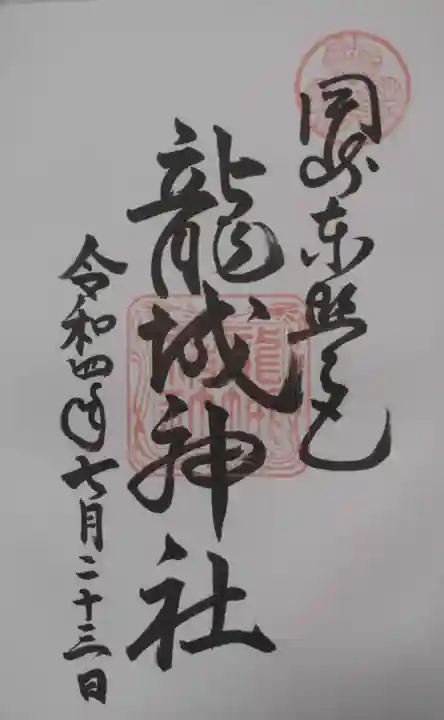 岡崎東照宮
龍城神社
令和四年七月二十三日